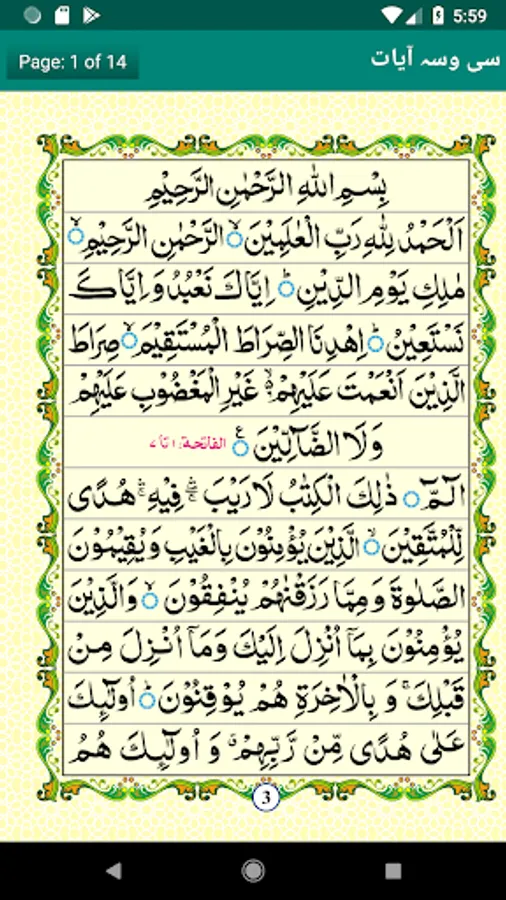 5:59
Page: 1 of 14
سی وسہ آیات
بِسْمِ اللهِ الرَّحْمٰنِ الرَّحِيْمِ
اَلْحَمْدُ لِلّٰهِ رَبِّ الْعٰلَمِيْنَ ۙ الرَّحْمٰنِ الرَّحِيْمِ ۙ
مٰلِكِ يَوْمِ الدِّيْنِ ؕ اِيَّاكَ نَعْبُدُ وَ اِيَّاكَ
نَسْتَعِيْنُ ؕ اِهْدِنَا الصِّرَاطَ الْمُسْتَقِيْمَ ۙ صِرَاطَ
الَّذِيْنَ اَنْعَمْتَ عَلَيْهِمْ ۙ غَيْرِ الْمَغْضُوْبِ عَلَيْهِمْ
وَلَا الضَّآلِّيْنَ ۧ الفاتحة: ۱ تا ۷
الٓمّٓ ذٰلِكَ الْكِتٰبُ لَا رَيْبَ ۛ فِيْهِ ۛ هُدًى
لِّلْمُتَّقِيْنَ ۙ الَّذِيْنَ يُؤْمِنُوْنَ بِالْغَيْبِ وَ يُقِيْمُوْنَ
الصَّلٰوةَ وَ مِمَّا رَزَقْنٰهُمْ يُنْفِقُوْنَ ۙ وَالَّذِيْنَ
يُؤْمِنُوْنَ بِمَآ اُنْزِلَ اِلَيْكَ وَ مَآ اُنْزِلَ مِنْ
قَبْلِكَ ۚ وَ بِالْاٰخِرَةِ هُمْ يُوْقِنُوْنَ ؕ اُولٰٓئِكَ
عَلٰى هُدًى مِّنْ رَّبِّهِمْ ۗ وَ اُولٰٓئِكَ هُمُ
3